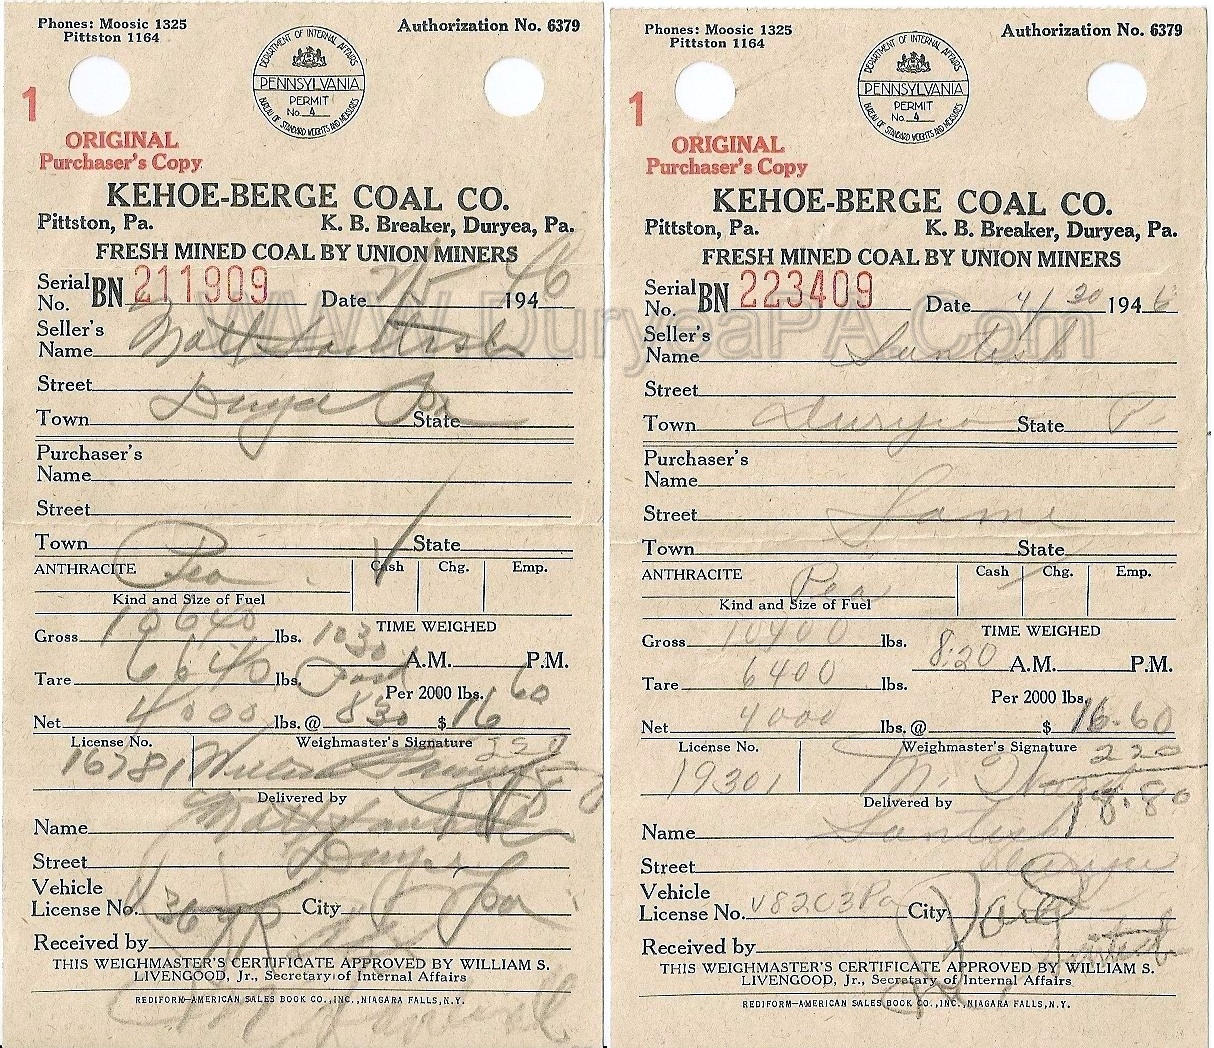 Phones: Moosic 1325
Pittston 1164
Authorization No. 6379
DEPARTMENT OF INTERNAL AFFAIRS
PENNSYLVANIA
PERMIT
No. 4
BUREAU OF STANDARD WEIGHTS AND MEASURES
1
ORIGINAL
Purchaser's Copy
KEHOE-BERGE COAL CO.
Pittston, Pa. K. B. Breaker, Duryea, Pa.
FRESH MINED COAL BY UNION MINERS
Serial No. BN 211909 Date 194 46
Seller's Name Matt
Street
Town Duryea Pa State
Purchaser's Name
Street
Town State
ANTHRACITE Pea Cash Chg. Emp.
Kind and Size of Fuel
Gross 10640 lbs. TIME WEIGHED
1030 A.M. P.M.
Tare 6640 lbs. Paid
Per 2000 lbs.
Net 4000 lbs. @ 830 $ 16 60
License No. Weighmaster's Signature 
16781 William
Delivered by
Name Matt
Street Duryea
Vehicle License No. City Pa
Received by
THIS WEIGHMASTER'S CERTIFICATE APPROVED BY WILLIAM S.
LIVENGOOD, Jr., Secretary of Internal Affairs
REDIFORM—AMERICAN SALES BOOK CO., INC., NIAGARA FALLS, N.Y.
Phones: Moosic 1325
Pittston 1164
Authorization No. 6379
DEPARTMENT OF INTERNAL AFFAIRS
PENNSYLVANIA
PERMIT
No. 4
BUREAU OF STANDARD WEIGHTS AND MEASURES
1
ORIGINAL
Purchaser's Copy
KEHOE-BERGE COAL CO.
Pittston, Pa. K. B. Breaker, Duryea, Pa.
FRESH MINED COAL BY UNION MINERS
Serial No. BN 223409 Date 4/30 194 6
Seller's Name
Street
Town Duryea State Pa
Purchaser's Name
Street Same
Town State
ANTHRACITE Pea Cash Chg. Emp.
Kind and Size of Fuel
Gross 10400 lbs. TIME WEIGHED
8:20 A.M. P.M.
Tare 6400 lbs.
Per 2000 lbs.
Net 4000 lbs. @ $ 16.60
License No. Weighmaster's Signature 2 20
19301 18.80
Delivered by
Name
Street Duryea
Vehicle License No. V8203 Pa City
Received by
THIS WEIGHMASTER'S CERTIFICATE APPROVED BY WILLIAM S.
LIVENGOOD, Jr., Secretary of Internal Affairs
REDIFORM—AMERICAN SALES BOOK CO., INC., NIAGARA FALLS, N.Y.
www.DuryeaPA.Com